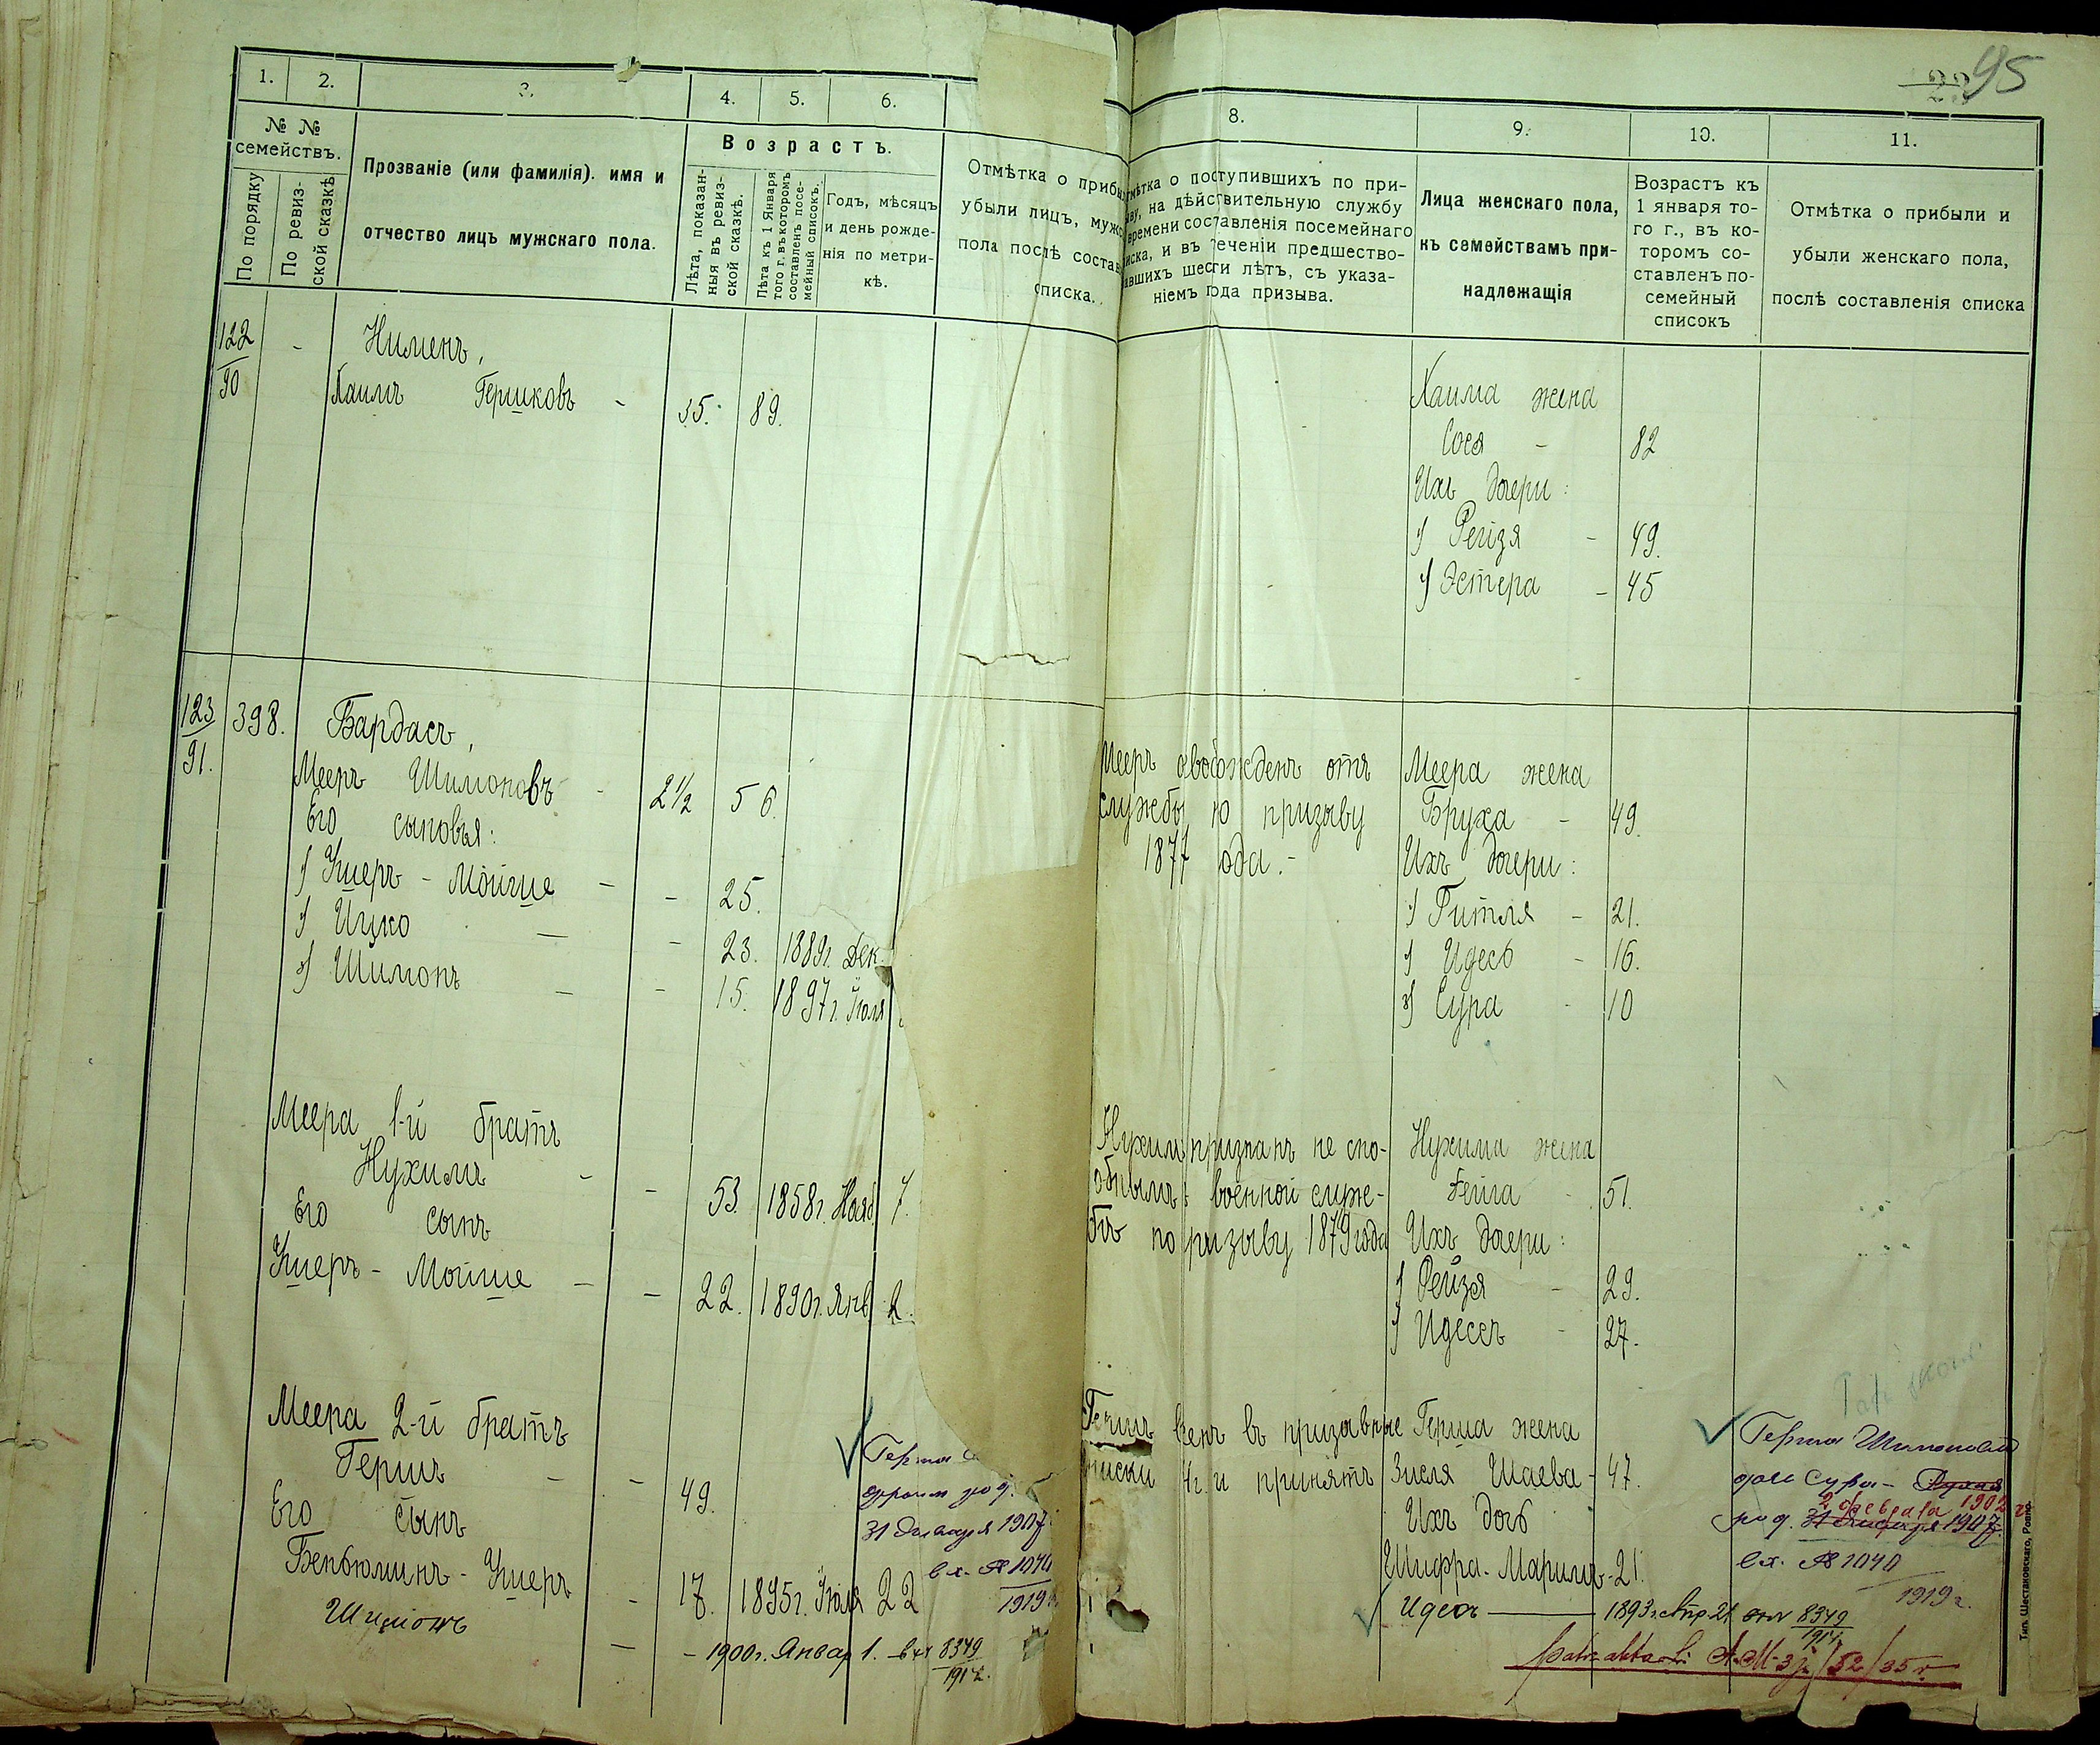 95
1.
2.
3.
4.
5.
6.
8.
9.
10.
11.
№ №
семействъ.
По порядку
По ревиз-
ской сказкѣ
Прозваніе (или фамилія). имя и
отчество лицъ мужскаго пола.
Возрастъ.
Лѣта, показан-
ныя въ ревиз-
ской сказкѣ.
Лѣта къ 1 Января
того г. въ которомъ
составленъ посе-
мейный списокъ.
Годъ, мѣсяцъ
и день рожде-
нія по метри-
кѣ.
Отмѣтка о прибы
убыли лицъ, мужс
пола послѣ состав
списка.
мѣтка о поступившихъ по при-
ву, на дѣйствительную службу
времени составленія посемейнаго
иска, и въ теченіи предшество-
авшихъ шести лѣтъ, съ указа-
ніемъ года призыва.
Лица женскаго пола,
къ семействамъ при-
надлежащія
Возрастъ къ
1 января то-
го г., въ ко-
торомъ со-
ставленъ по-
семейный
списокъ
Отмѣтка о прибыли и
убыли женскаго пола,
послѣ составленія списка
122
90
-
Нименъ,
Хаимъ Гершковъ - 35. 89.
Хаима жена
Сося - 82
Ихъ дочери:
1) Рейзя - 49.
2) Эстера - 45
123
91.
398.
Бардасъ,
Мееръ Шимоновъ - 2½ 56.
Его сыновья:
1) Ушеръ - Мойше - - 25.
2) Ицко - - 23. 1889г. Дек.
3) Шимонъ - - 15. 1897г. Іюля
Мееръ освобожденъ отъ
службы по призыву
1877 года.-
Меера жена
Бруха - 49.
Ихъ дочери:
1) Гитля - 21.
2) Идесь - 16.
3) Сура - 10
Меера 1-й братъ
Нухимъ - - 53. 1858г. Нояб 7.
Его сынъ
Ушеръ - Мойше - - 22. 1890г. Янв. 2.
Нухимъ признанъ не спо-
обнымъ военной служ-
бѣ по ризыву 1879 года
Нухима жена
Фейга - 51.
Ихъ дочери:
1) Рейзя - 29.
2) Идесъ - 27.
Меера 2-й братъ
Гершъ - - 49.
Его сынъ
Беньюминъ - Ушеръ - 17. 1895г. Іюля 22
Шимонъ - - 1900г. Январ 1. - вх 8379
Герша
31 Января 1907
вх. № 1040
1919
Гершъ сенъ въ призывные
писки г. и принятъ
Герша жена
Зисля Шаева - 47.
Ихъ дочь
Шифра - Маримъ - 21.
Идесъ - 1893г. Апр. 21 8379
Герша Шимоновъ
дочь Сура - Рухля
2 февраля 1902 г.
род. 31 Января 1907г.
вх. № 1040
1919г.
Тип. Шестаковскаго, Ровно.